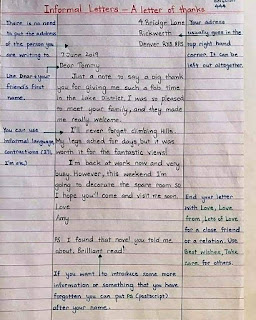 Informal Letters - A letter of thanks
There is no need
to put the address
of the person you
are writing to.
Use Dear + your
friend's first
name.
You can use
informal language,
contractions (I'll,
I'm, etc.)
4 Bridge Lane
Rickworth
Denver R28 8HS
7 June 2019
Dear Tommy
Just a note to say a big thank
you for giving me such a fab time
in the Lake District. I was so pleased
to meet your family, and they made
me really welcome.
I'll never forget climbing Hills.
My legs ached for days but it was
worth it for the fantastic views!
I'm back at work now and very
busy. However, this weekend I'm
going to decorate the spare room so
I hope you'll come and visit me soon.
Love
Amy
PS I found that novel you told me
about. Brilliant read!
Your address
usually goes in the
top right hand
corner. It can be
left out altogether.
End your letter
with Love, Love
from, Lots of Love
for a close friend
or a relation. Use
Best wishes, Take
care for others.
If you want to introduce some more
information or something that you have
forgotten you can put PS (postscript)
after your name.